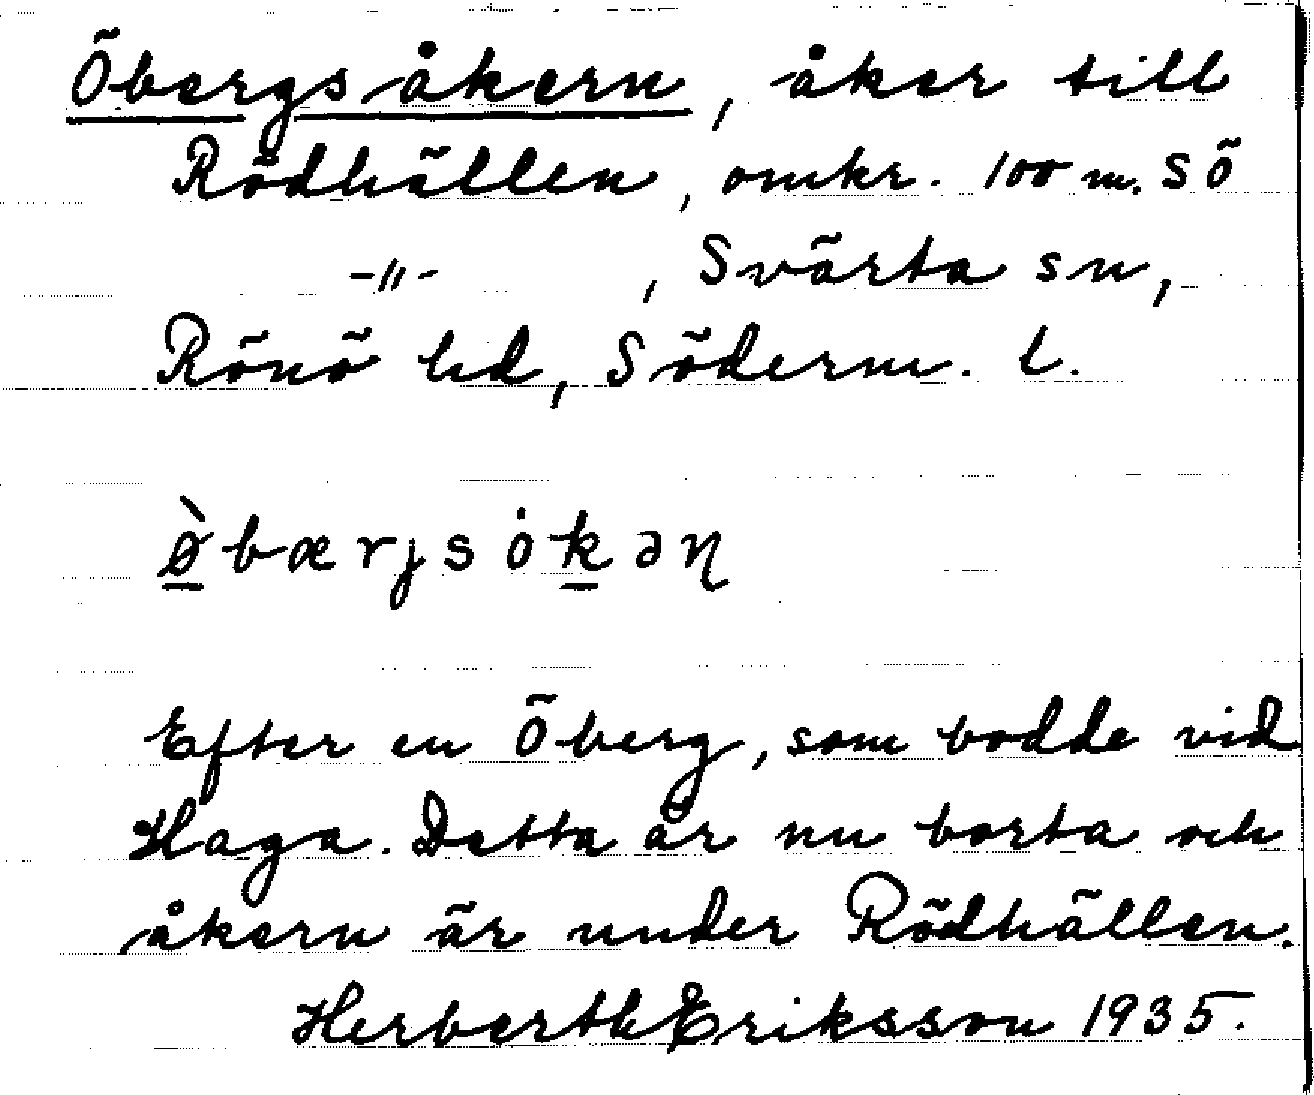 Öbergsåkern, åker till
Rödhällen, omkr. 100 m. SÖ
-"- , Svärta sn,
Rönö hd, Söderm. l.
ø̀bærjsȯkəɳ
Efter en Öberg, som bodde vid
Haga. Detta är nu borta och
åkern är under Rödhällen.
Herberth Eriksson 1935.